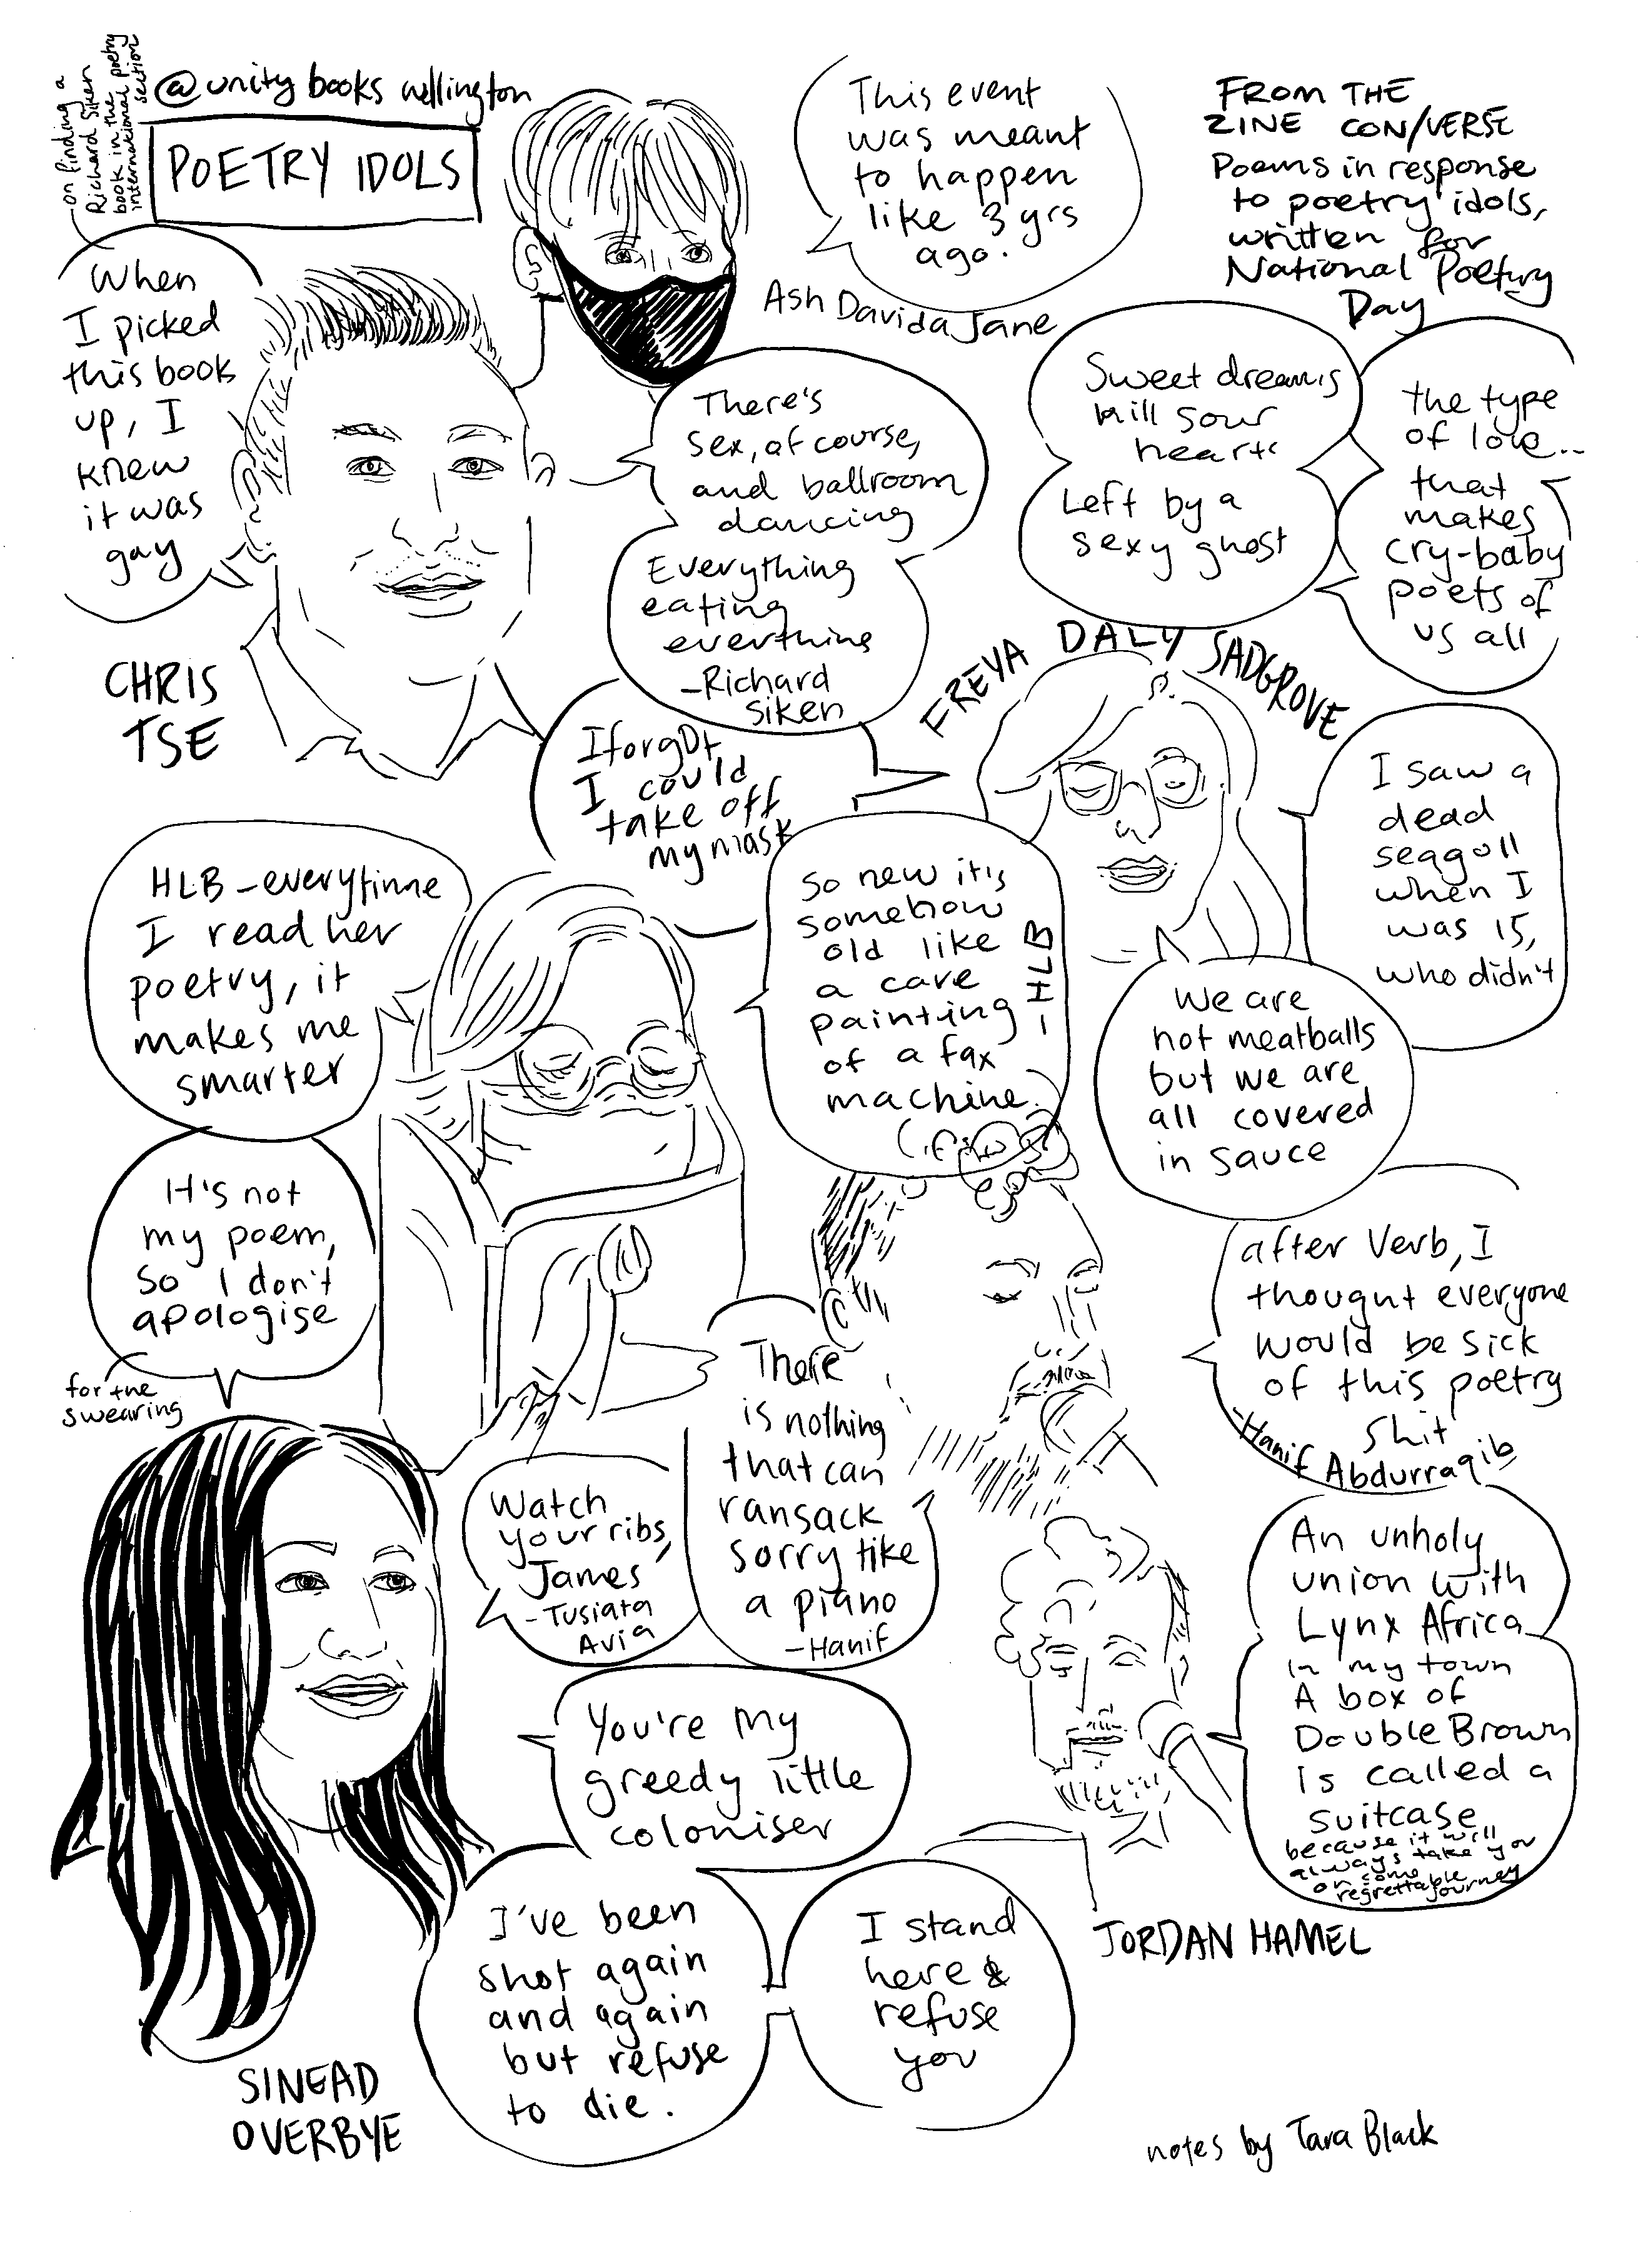 on finding a
Richard Siken
book in the
international poetry
section
@unity books wellington
POETRY IDOLS
When
I picked
this book
up, I
knew
it was
gay
CHRIS
TSE
This event
was meant
to happen
like 3 yrs
ago.
Ash Davida Jane
FROM THE
ZINE CON/VERSE
Poems in response
to poetry idols,
written for
National Poetry
Day
There's
sex, of course,
and ballroom
dancing
Everything
eating
everthing
-Richard
Siken
Sweet dreams
kill sour
hearts
Left by a
sexy ghost
the type
of love...
that
makes
cry-baby
poets of
us all
FREYA DALY SADGROVE
I forgot
I could
take off
my mask
I saw a
dead
seagull
when I
was 15,
who didn't
We are
not meatballs
but we are
all covered
in sauce
HLB - everytime
I read her
poetry, it
makes me
smarter
So new it's
somehow
old like
a cave
painting
of a fax
machine.
- HLB
It's not
my poem,
so I don't
apologise
for the
swearing
after Verb, I
thought everyone
would be sick
of this poetry
shit
-Hanif Abdurraqib
There
is nothing
that can
ransack
sorry like
a piano
-Hanif
Watch
your ribs,
James
-Tusiata
Avia
An unholy
union with
Lynx Africa
In my town
A box of
Double Brown
is called a
suitcase
because it will
always take you
on some
regrettable
journey
JORDAN HAMEL
You're my
greedy little
coloniser
I've been
shot again
and again
but refuse
to die.
I stand
here &
refuse
you
SINEAD
OVERBYE
notes by Tara Black